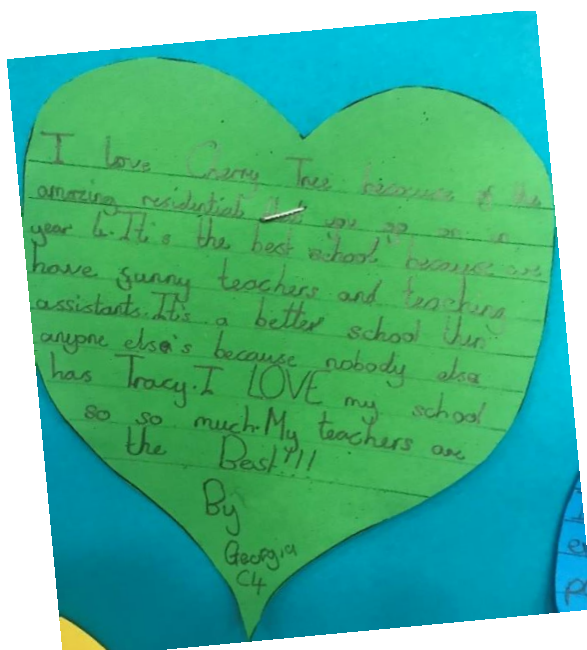 I love Cherry Tree because of the
amazing residential that you go on in
year 4. It's the best school because we
have funny teachers and teaching
assistants. It's a better school than
anyone else's because nobody else
has Tracy. I LOVE my school
so so much. My teachers are
the Best!!!
By
Georgia
C4
e